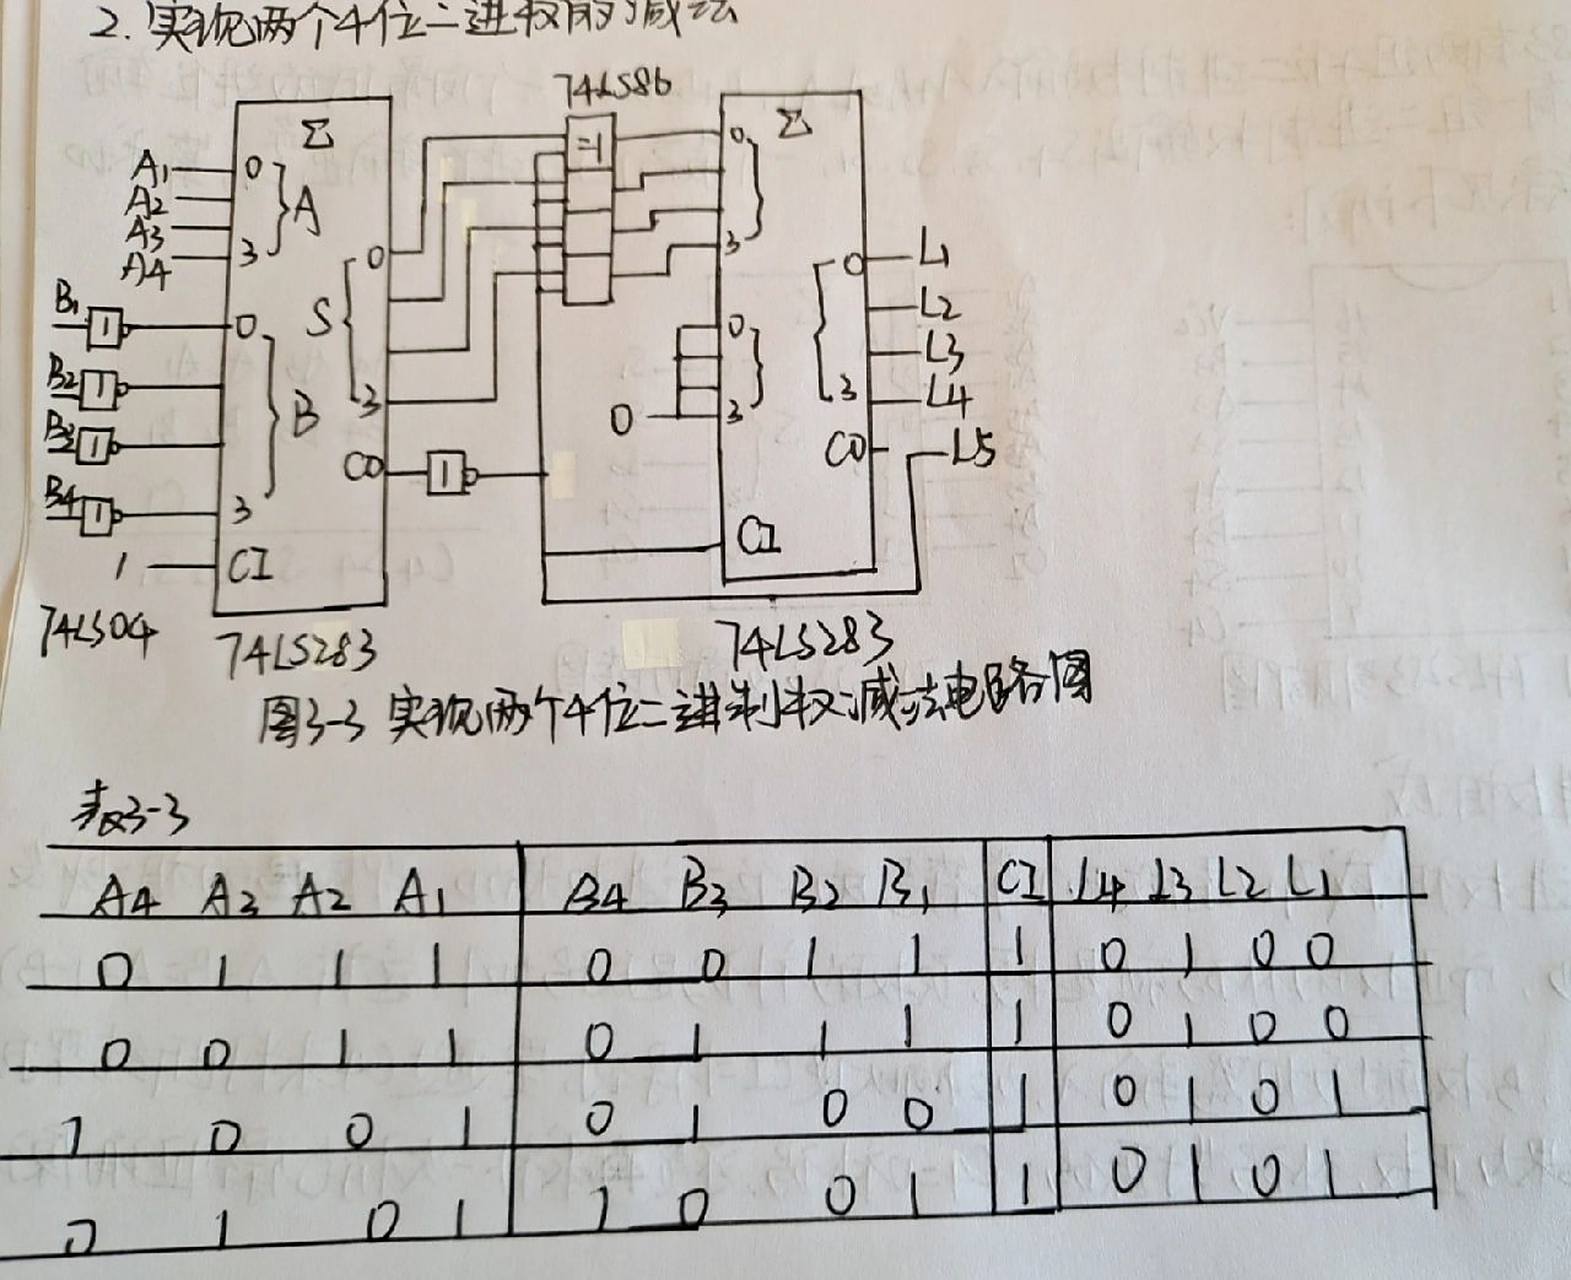 2. 实现两个4位二进制的减法
74LS86
Σ
=1
0
Σ
A1
0
A
A2
A3
3
A4
0
3
0
L1
B1
1
0
S
L2
0
L3
B2
1
3
0
3
3
L4
B3
1
B
CO
1
CO
L5
B4
1
3
1
CI
CI
74LS04
74LS283
74LS283
图3-3 实现两个4位二进制数减法电路图
表3-3
A4 A3 A2 A1 B4 B3 B2 B1 CI L4 L3 L2 L1
0 1 1 1 0 0 1 1 1 0 1 0 0
0 0 1 1 0 1 1 1 1 0 1 0 0
1 0 0 1 0 1 0 0 1 0 1 0 1
0 1 0 1 1 0 0 1 1 0 1 0 1